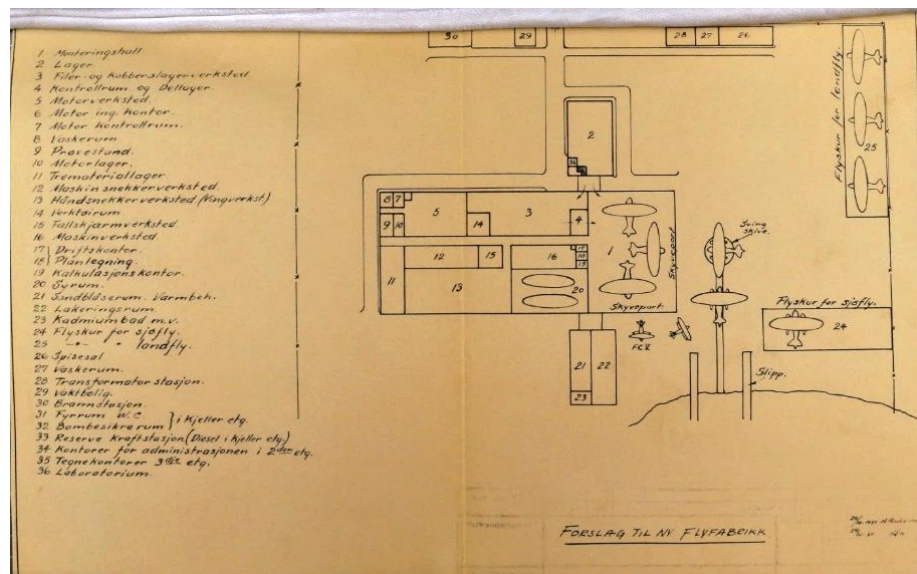 1 Monteringshall
2 Lager
3 Filer- og Kobberslagerverksted
4 Kontrollrum og Dellager
5 Motorverksted.
6 Motor ing. Kontor.
7 Motor Kontrollrum.
8 Vaskerum
9 Prøvestand.
10 Motorlager.
11 Tremateriallager
12 Maskinsnekkerverksted.
13 Håndsnekkerverksted (Vingverkst.)
14 Verktøirum
15 Fallskjærmverksted.
16 Maskinverksted.
17 } Driftskontor.
18 } Planlegning.
19 Kalkulasjonskontor.
20 Syrum.
21 Sandblåserum. Varmbeh.
22 Lakeringsrum.
23 Kadmiumbad m.v.
24 Flyskur for sjøfly.
25 -"- " landfly.
26 Spisesal
27 Vaskerum.
28 Transformator stasjon.
29 Vaktbolig.
30 Brannstasjon.
31 Fyrrum W.C. } i Kjeller etg.
32 Bombesikre rum
33 Reserve Kraftstasjon (Diesel i Kjeller etg.)
34 Kontorer for administrasjonen i 2den etg.
35 Tegnekontorer 3die etg.
36 Laboratorium.
30 29 28 27 26
Flyskur for landfly.
25
2
8 7 5 3 4
9 10 14
1
Skyveport
Sving skive.
12 15 16
11 13 20
Skyveport
Flyskur for sjøfly.
24
FC V
21 22
23
Slipp.
FORSLAG TIL NY FLYFABRIKK